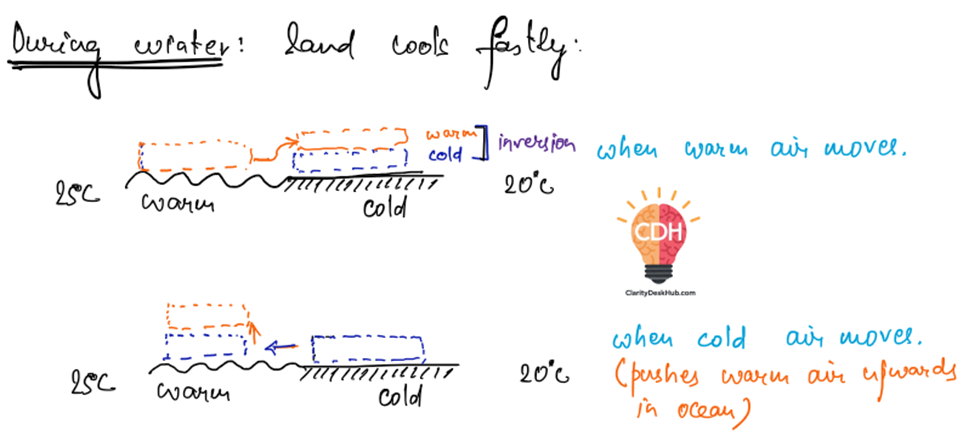 During winter: land cools fastly:
warm
cold
inversion
when warm air moves.
25°C
warm
cold
20°C
CDH
ClarityDeskHub.com
when cold air moves.
(pushes warm air upwards
in ocean)
25°C
warm
cold
20°C